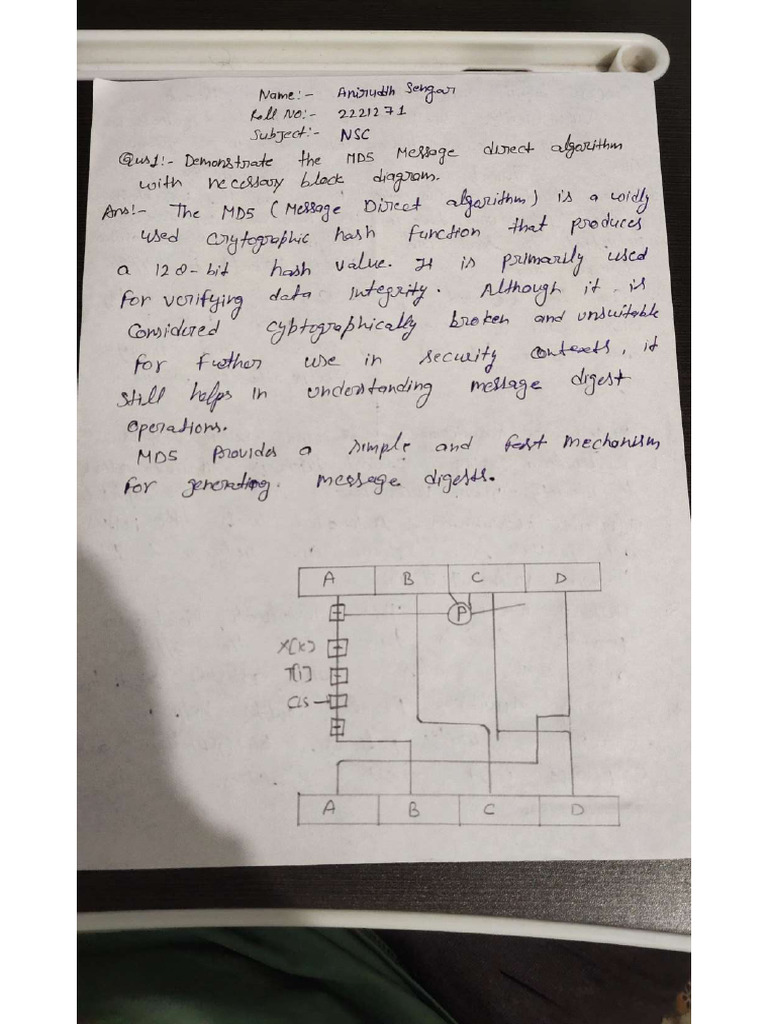 Name:- Anirudth Sengar
Roll No:- 2221271
Subject:- NSC
Qus1:- Demonstrate the MD5 Message direct algorithm
with necessary block diagram.
Ans:- The MD5 (Message Direct algorithm) is a widly
used Crytographic hash function that produces
a 128-bit hash value. It is primarily used
for verifying data integrity. Although it is
Considured cybtographically broken and unsuitable
for further use in security contexts, it
still helps in understanding message digest
operations.
MD5 Provides a simple and fast mechanism
for generating message digests.
A B C D
P
X[K]
T[i]
CLS
A B C D